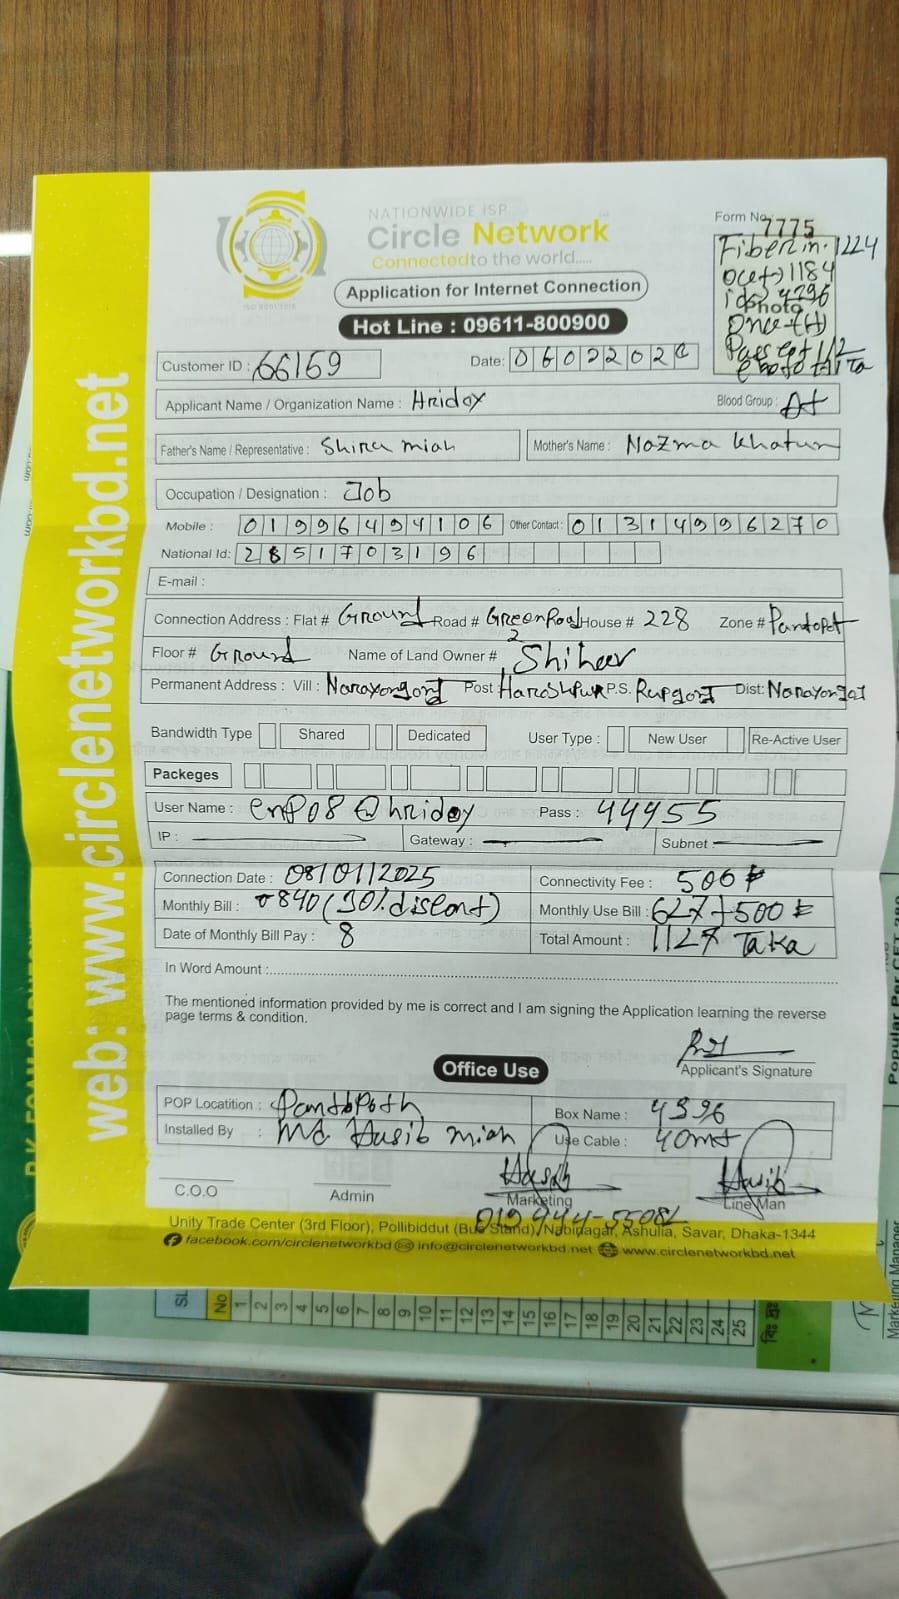 web: www.circlenetworkbd.net
NATIONWIDE ISP
Circle Network
Connected to the world.....
ISO 9001:2015
Application for Internet Connection
Hot Line : 09611-800900
Form No: 7775
Fiber in. 1224
1184
id 4296
Photo
Once-(H)
Customer ID : 66169
Date: 0602202
Applicant Name / Organization Name : Hridoy
Blood Group : A+
Father's Name / Representative : Shiru miah
Mother's Name : Nazma Khatun
Occupation / Designation : Job
Mobile : 01996494106 Other Contact : 01314996270
National Id: 2851703196
E-mail :
Connection Address : Flat # Ground Road # GreenRoad House # 228 Zone #
Floor # Ground Name of Land Owner #
Permanent Address : Vill : Post : P.S. Dist:
Bandwidth Type Shared Dedicated User Type : New User Re-Active User
Packeges
User Name : enp08@hridoy Pass : 44455
IP : Gateway : Subnet
Connection Date : 08/01/2025 Connectivity Fee : 500৳
Monthly Bill : 840 (30% discont) Monthly Use Bill : 627+500৳
Date of Monthly Bill Pay : 8 Total Amount : 1127 Taka
In Word Amount :
The mentioned information provided by me is correct and I am signing the Application learning the reverse
page terms & condition.
Applicant's Signature
Office Use
POP Locatition : Panthpoth Box Name : 4396
Installed By : Md Hasib miah Use Cable : 40mt
C.O.O Admin Marketing Line Man
Unity Trade Center (3rd Floor), Pollibiddut (Bus Stand), Nabinagar, Ashulia, Savar, Dhaka-1344
facebook.com/circlenetworkbd info@circlenetworkbd.net www.circlenetworkbd.net
SL
No
1
2
3
4
5
6
7
8
9
10
11
12
13
14
15
16
17
18
19
20
21
22
23
24
25
Marketing Manager